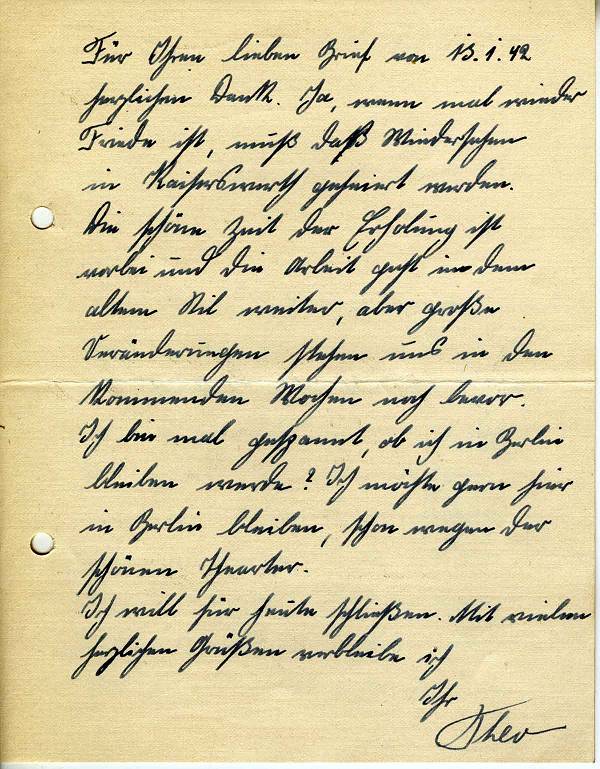 Für Ihren lieben Brief von 13.1.42
herzlichen Dank. Ja, wenn mal wieder
Friede ist, muß daß Wiedersehen
in Kaiserswerth gefeiert werden.
Die schöne Zeit der Erholung ist
vorbei und die Arbeit geht in dem
altem Stil weiter, aber große
Veränderungen stehen uns in den
kommenden Wochen noch bevor.
Ich bin mal gespannt, ob ich in Berlin
bleiben werde? Ich möchte gern hier
in Berlin bleiben, schon wegen der
schönen Thearter.
Ich will für heute schließen. Mit vielen
herzlichen Grüßen verbleibe ich
Ihr
Theo